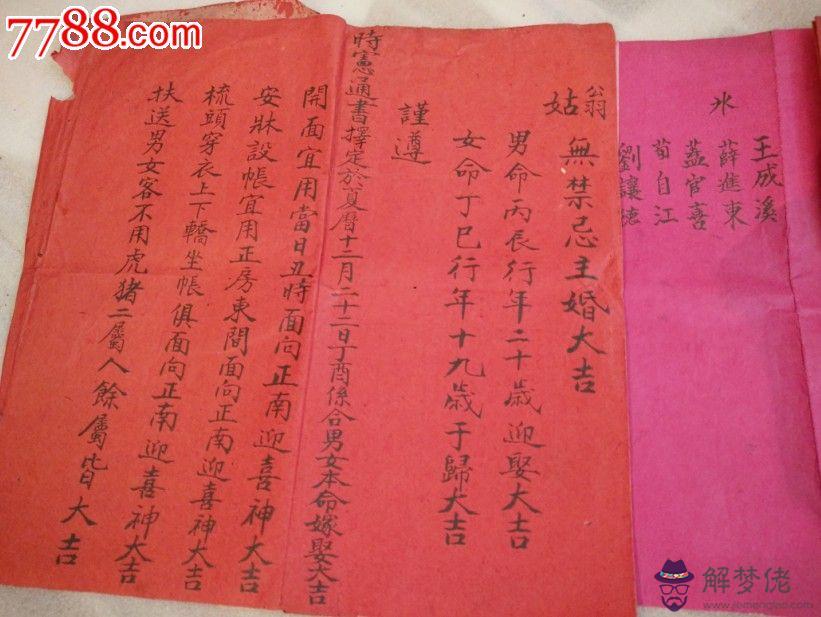 7788.com
冰
王成溪
薛進東
蓋官喜
荀自江
劉讓德
翁
姑
無禁忌主婚大吉
男命丙辰行年二十歲迎娶大吉
女命丁巳行年十九歲于歸大吉
謹遵
時憲通書擇定於夏曆十二月二十二日丁酉係合男女本命嫁娶大吉
開面宜用當日丑時面向正南迎喜神大吉
安牀設帳宜用正房東間面向正南迎喜神大吉
梳頭穿衣上下轎坐帳俱面向正南迎喜神大吉
扶送男女客不用虎猪二屬人餘屬皆大吉
解梦佬